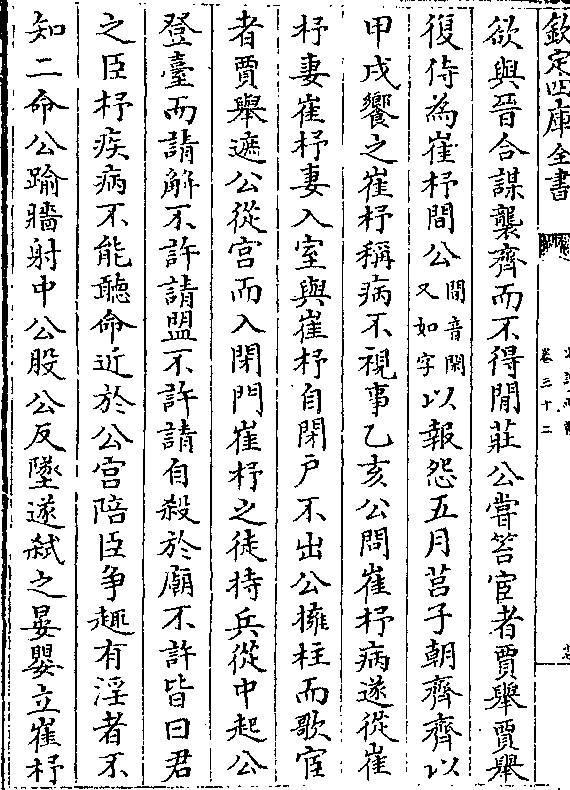 欽定四庫全書
卷三十二
欲與晉合謀襲齊而不得閒莊公嘗笞宦者賈舉賈舉
復侍為崔杼間公間音閑又如字以報怨五月莒子朝齊齊以
甲戌饗之崔杼稱病不視事乙亥公問崔杼病遂從崔
杼妻崔杼妻入室與崔杼自閉戶不出公擁柱而歌宦
者賈舉遮公從宮而入閉門崔杼之徒持兵從中起公
登臺而請解不許請盟不許請自殺於廟不許皆曰君
之臣杼疾病不能聽命近於公宮陪臣争趣有淫者不
知二命公踰牆射中公股公反墜遂弒之晏嬰立崔杼